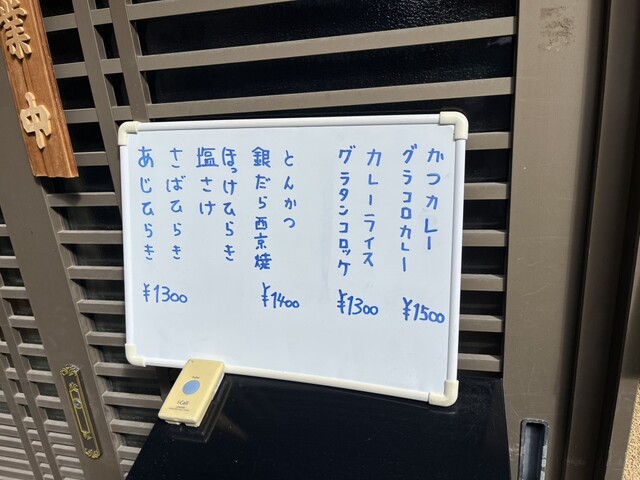 業中
かつカレー
グラコロカレー
¥1500
カレーライス
グラタンコロッケ
¥1300
とんかつ
銀だら西京焼
¥1400
ほっけひらき
塩さけ
さばひらき
あじひらき
¥1300